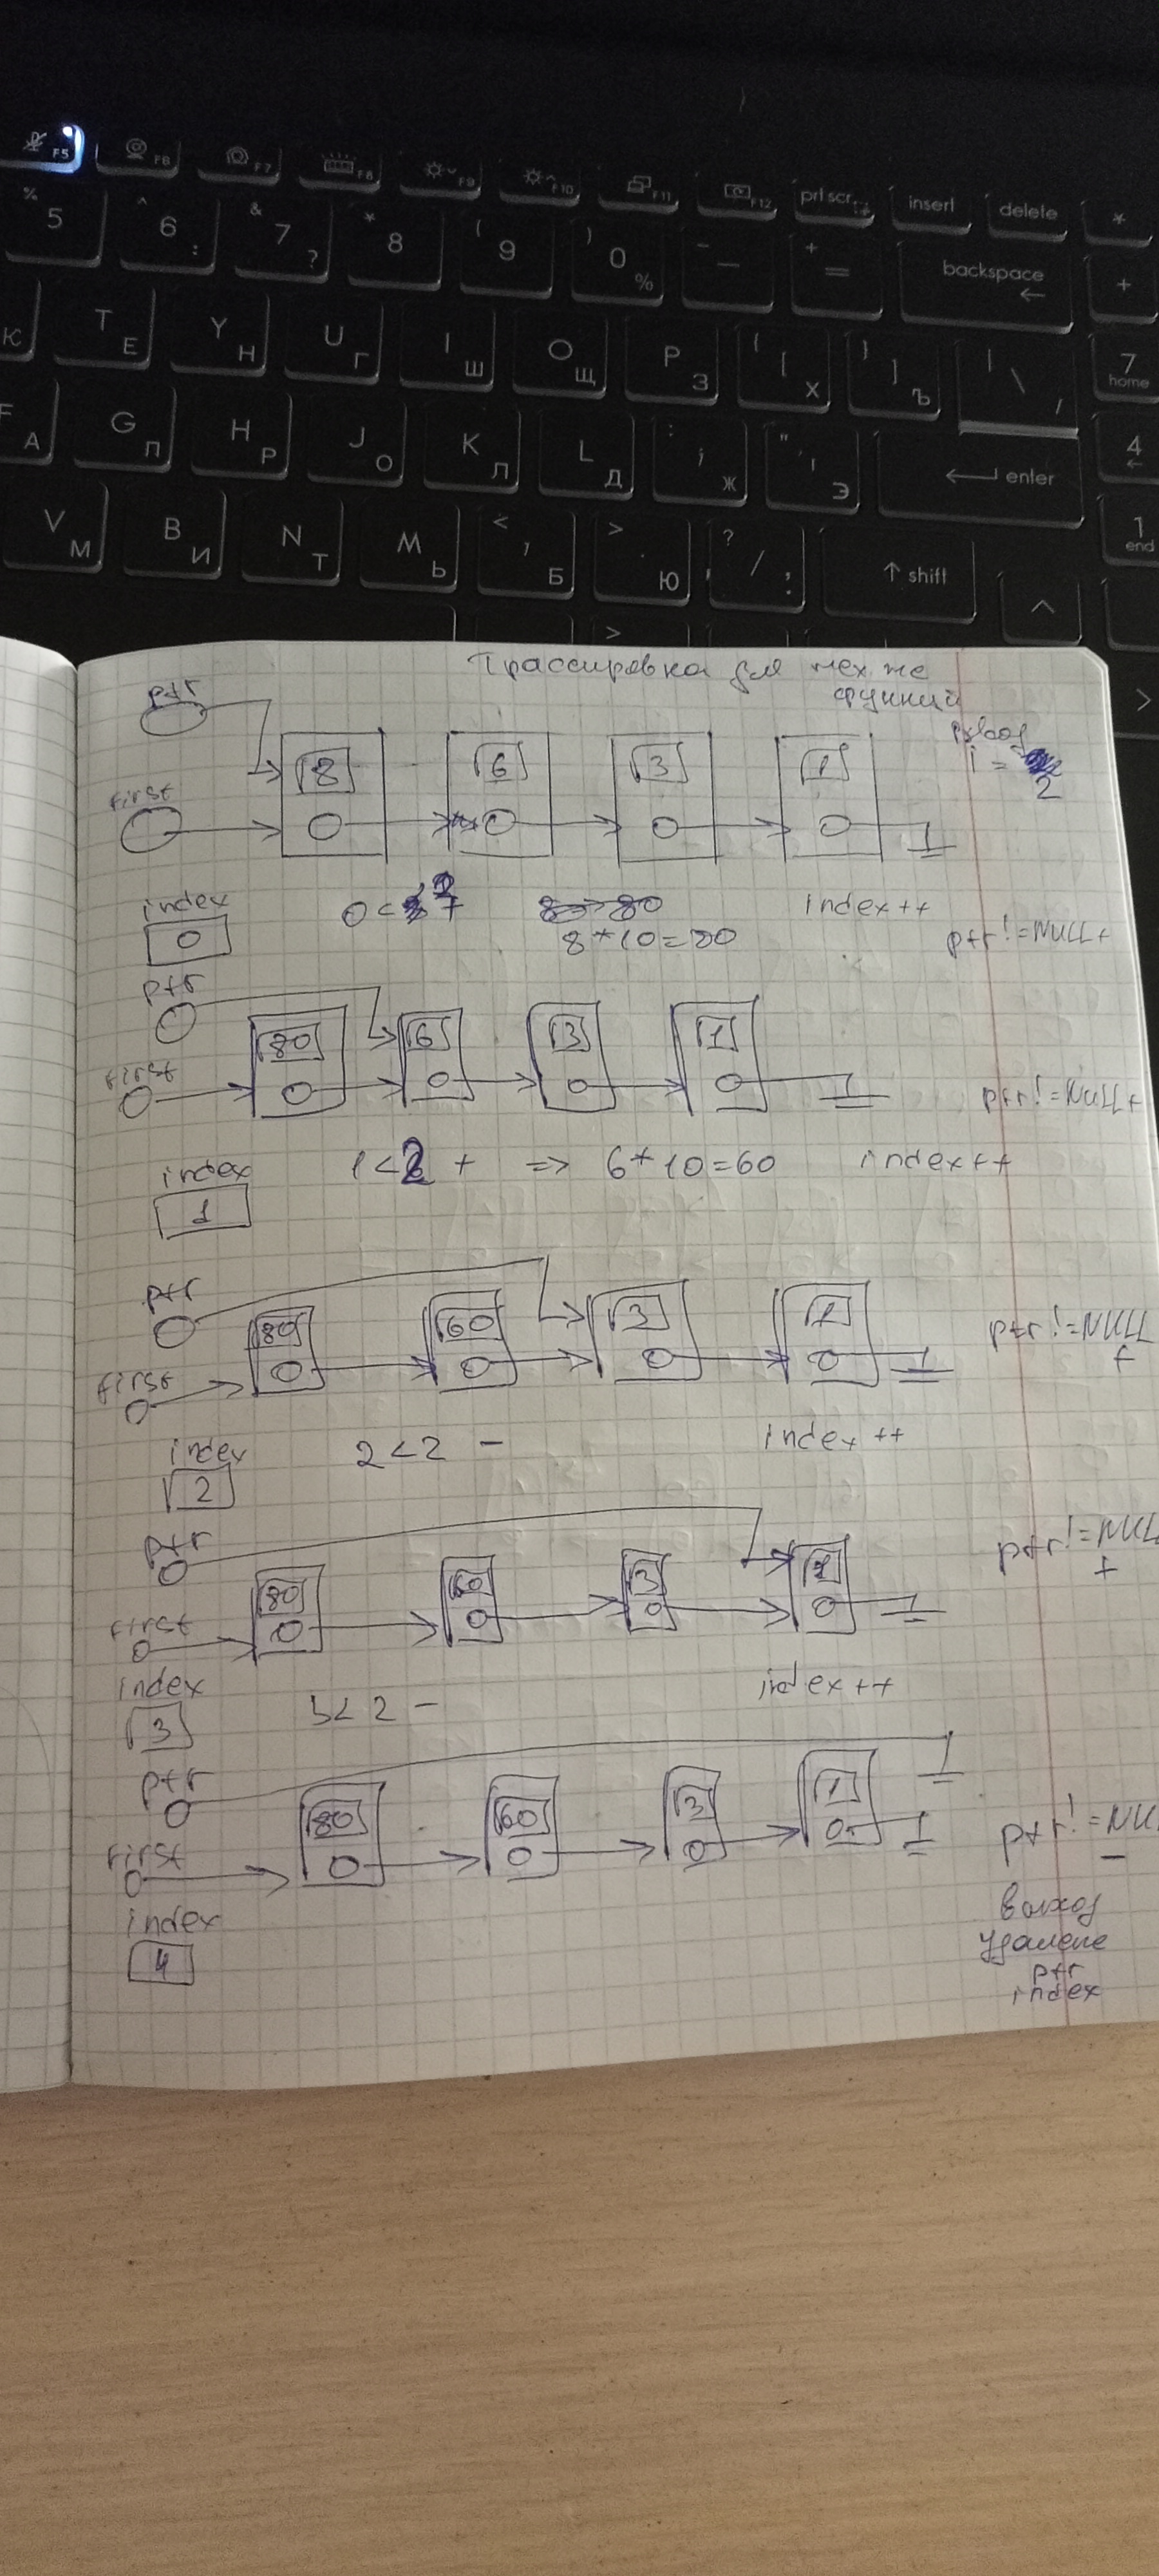 F5 F6 F7 F8 F9 F10 F11 F12 prt scr insert delete *
% 5 ^ 6 : & 7 ? * 8 ( 9 ) 0 % _ — + = backspace +
К T Е Y Н U Г I Ш O Щ P З { [ Х } ] Ъ | \ / 7 home
F А G П H Р J О K Л L Д : ; Ж " ' Э enter 4
V М B И N Т M Ь < , Б > . Ю ? / shift 1 end
>
Трассировка для тех же
функций
ptr
8 6 3 1
i =
2
first
index
0
0<2 +
8*10=80
index++
ptr!=NULL+
ptr
80 6 3 1
first
ptr!=NULL+
index
1
1<2 + => 6*10=60 index++
ptr
80 60 3 1
ptr!=NULL
+
first
index
2
2<2 - index++
ptr
80 60 3 1
ptr!=NULL
+
first
index
3
3<2 - index++
ptr
80 60 3 1
ptr!=NU
-
first
index
4
выход
ptr
index